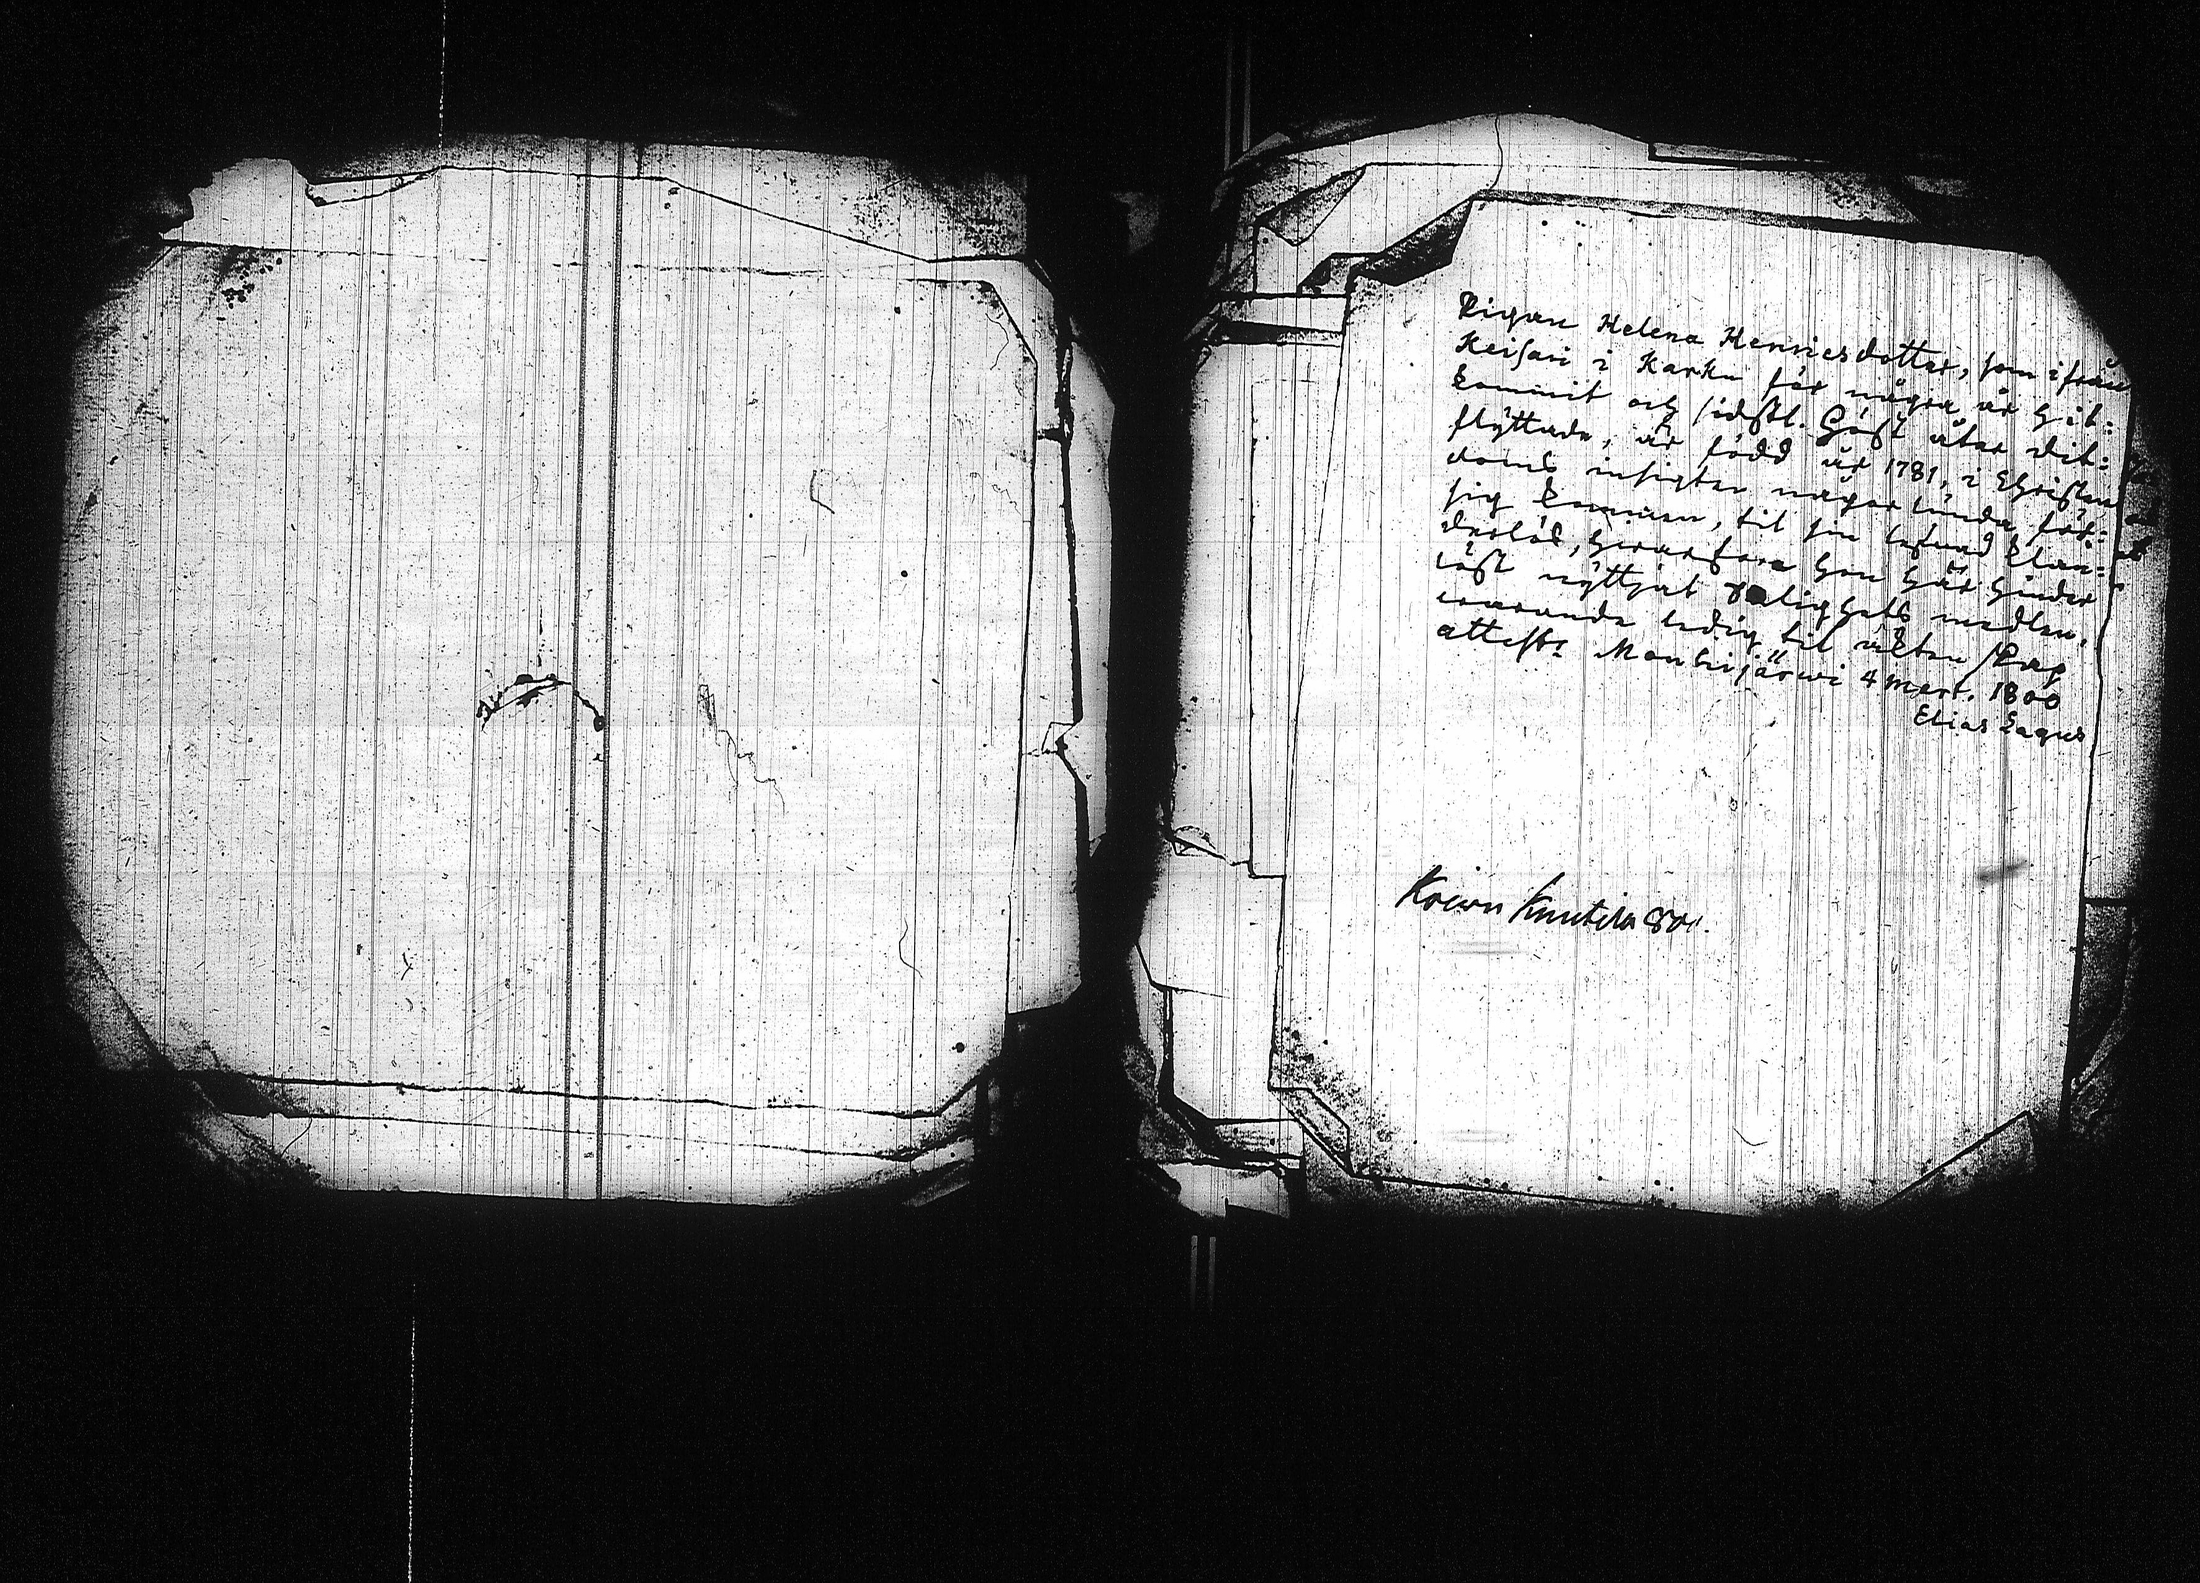 Pigan Helena Henricsdotter, som ifrån
Keisari i Karku för några år hit=
kommit och sidstl. Höst åter dit=
flyttade, är född år 1781, i Christen
doms insigter någorlunda för=
sig kommen, til sin lefnad klan=
derlös, hvarföre hon här hinder
löst nyttjat Salighets medlen,
warande ledig til ächtenskap
attest: Mouhijärwi 4 Mart. 1800
Elias Lagus
Koiwu Knutila 801.